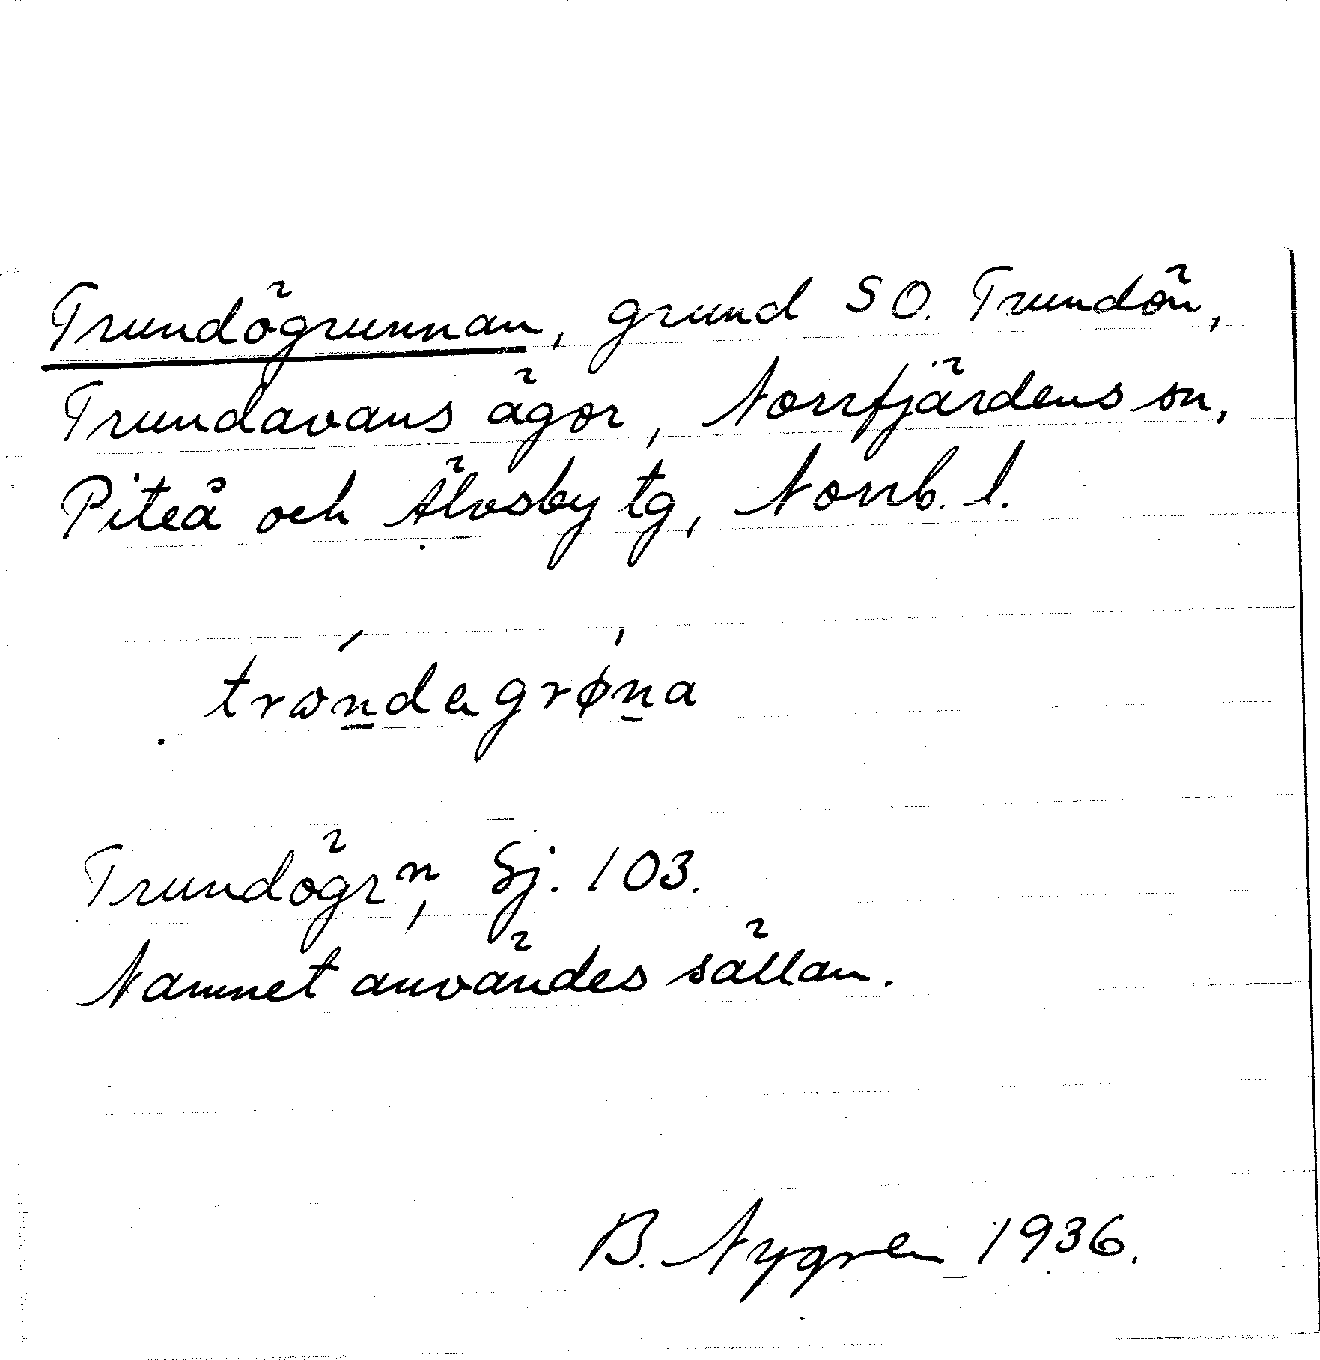 Trundögrunnan, grund SO. Trundön,
Trundavans ägor, Norrfjärdens sn,
Piteå och Älvsby tg, Norrb. l.
trωńdagrøńa
Trundögrⁿ, Sj. 103.
Namnet användes sällan.
B. Nygren 1936.